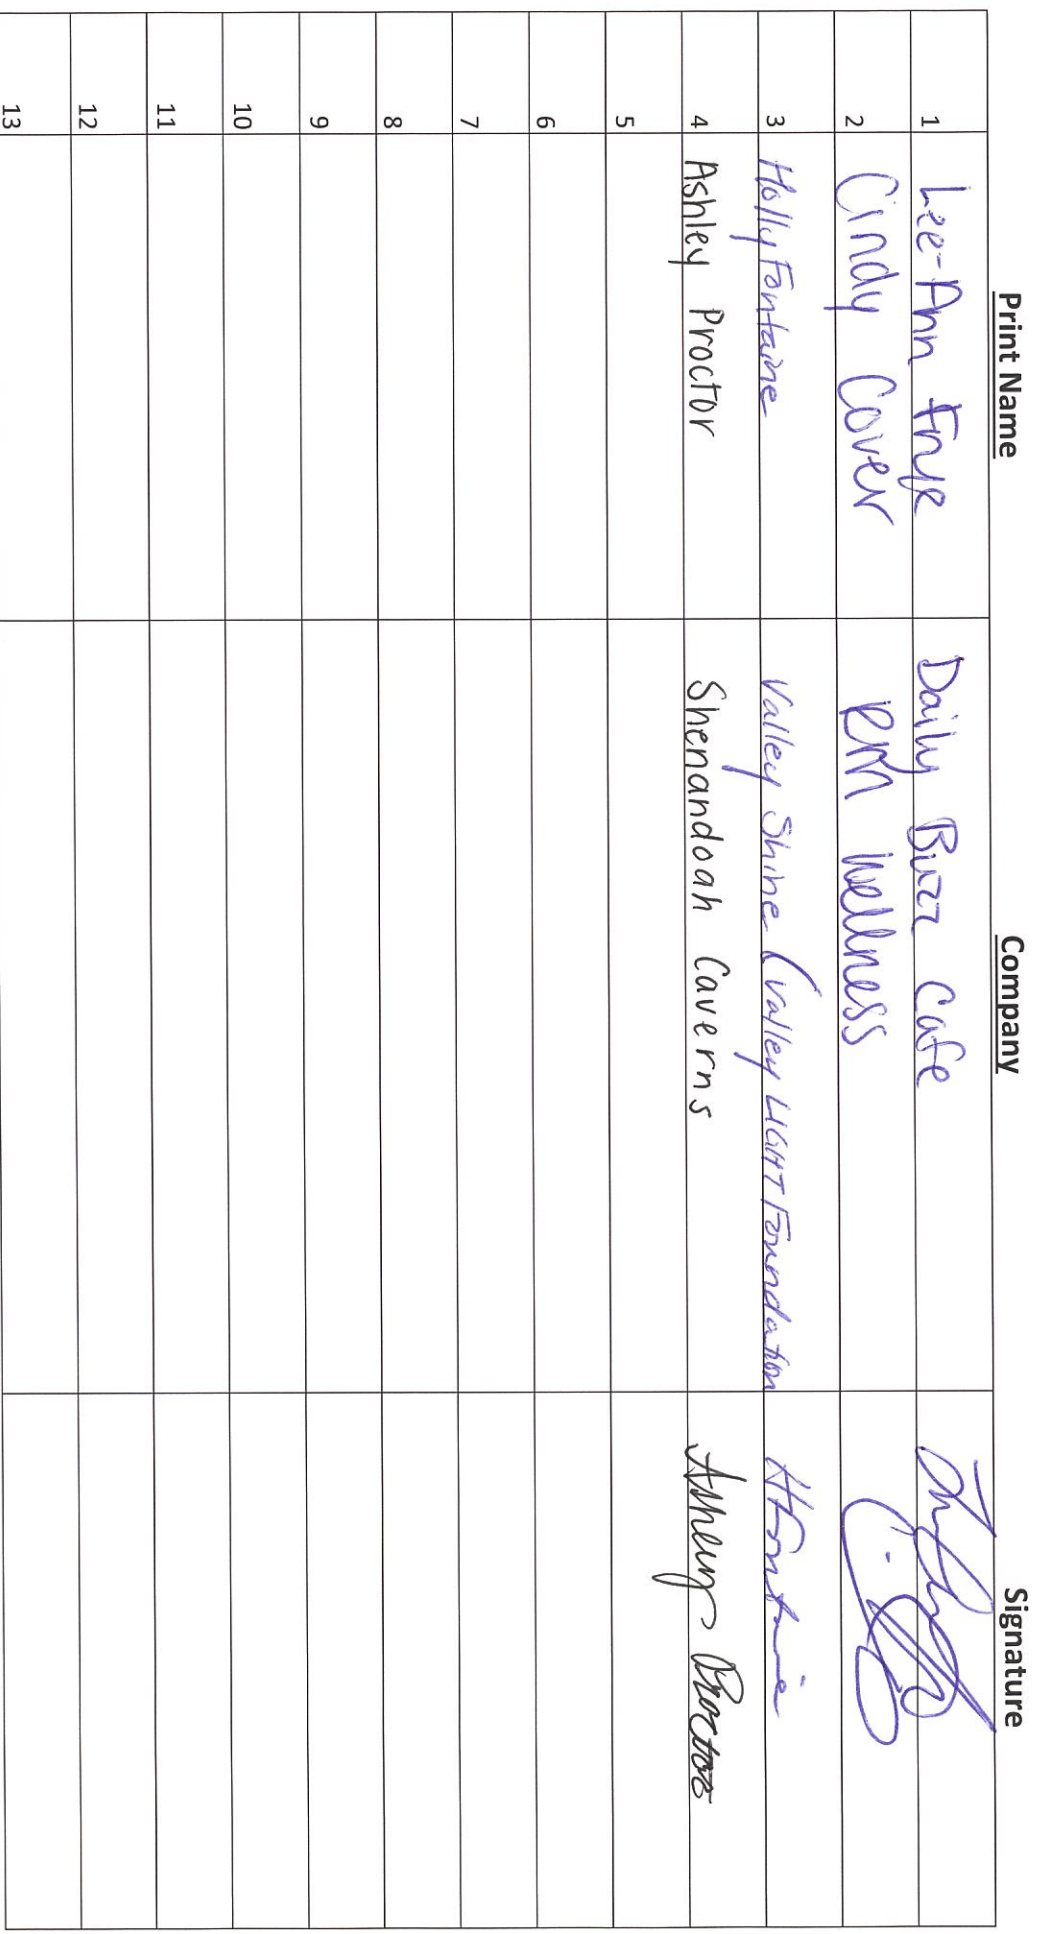 Print Name Company Signature
1 Lee-Ann Frye Daily Buzz Cafe
2 Cindy Cover ERM Wellness
3 Holly Fontaine Valley Shine (Valley LIGHT Foundation HFontaine
4 Ashley Proctor Shenandoah Caverns Ashley Proctor
5
6
7
8
9
10
11
12
13